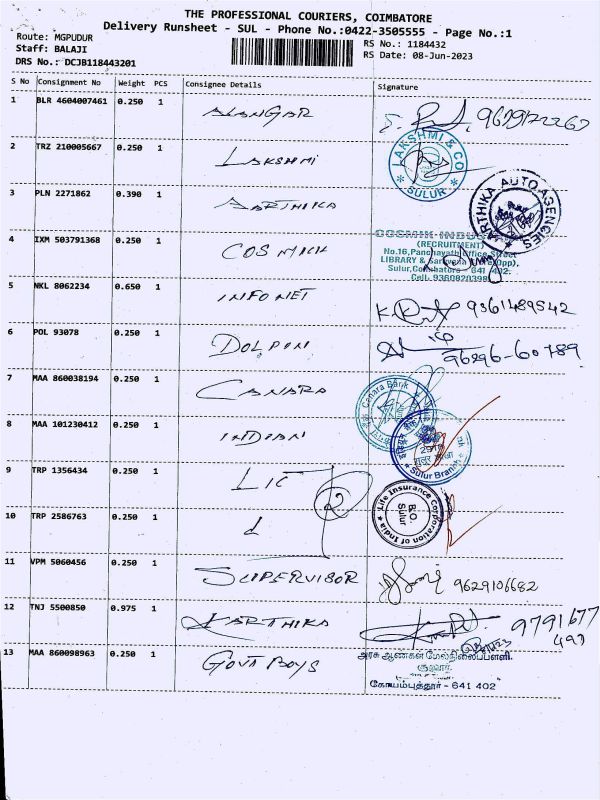 THE PROFESSIONAL COURIERS, COIMBATORE
Delivery Runsheet - SUL - Phone No.:0422-3505555 - Page No.:1
Route: MGPUDUR
RS No.: 1184432
Staff: BALAJI
RS Date: 08-Jun-2023
DRS No.: DCJB118443201
S No Consignment No Weight PCS Consignee Details Signature
1 BLR 4604007461 0.250 1 ALANGAR
2 TRZ 210005667 0.250 1 LAKSHMI LAKSHMI & CO SULUR
3 PLN 2271862 0.390 1 AARTHIKA KARTHIKA AUTO AGENCIES
4 IXM 503791368 0.250 1 COSMICK COSMIK INDUS
(RECRUITMENT)
No.16, Panchayath Office Street
LIBRARY &
Sulur, Coimbatore 641 402.
Cell. 9360820398
5 NKL 8062234 0.650 1 INFONET 9361489542
6 POL 93078 0.250 1 DOLPIN 96296-60789
7 MAA 860038194 0.250 1 CANARA Canara Bank
8 MAA 101230412 0.250 1 INDIAN Sulur Branch
9 TRP 1356434 0.250 1 LIC Life Insurance Corporation of India
B.O.
Sulur
10 TRP 2586763 0.250 1
11 VPM 5060456 0.250 1 SUPERVISOR 9629106682
12 TNJ 5500850 0.975 1 KARTHIKA 9791677
493
13 MAA 860098963 0.250 1 GOVT BOYS அரசு ஆண்கள் மேல்நிலைப்பள்ளி.
சூலூர்.
கோயம்புத்தூர் - 641 402